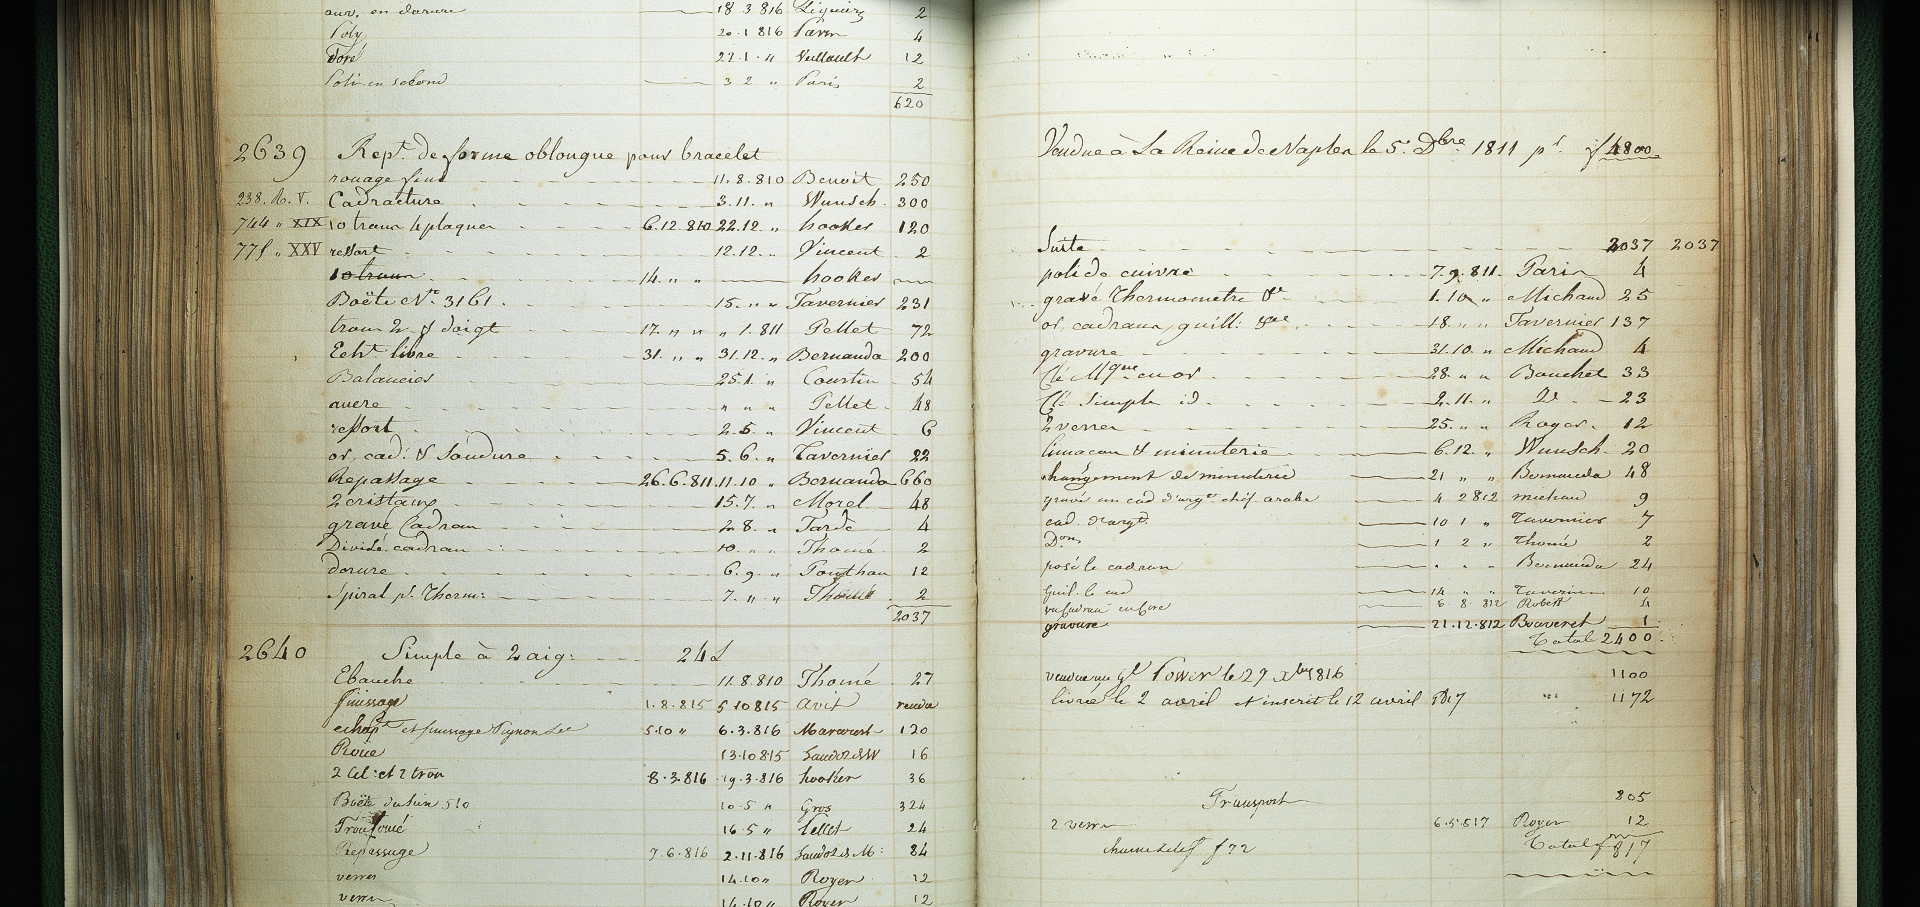 aux. en dorure 18 3 816 2
Poly 20 1 816 Parin 4
Doré 22 1 " Veillault 12
Poli en second 3 2 " Paris 2
620
2639 Rept. de forme oblongue pour bracelet
rouage fini 11.8.810 Benoit 250
238. R. V. Cadracture 3.11. " Wunsch 300
744 " XIX 10 trous 4 plaques 6.12 810 22.12 " hooker 120
775 " XXV ressort 12.12. " Vincent 2
10 trous 14 " " hooker
Boëte No. 3161. 15. " " Tavernier 231
trous 2 & doigt 17. " " " 1. 811 Pellet 72
Echt. libre 31. " " 31.12. " Bernauda 200
Balancier 25.1. " Courtin 54
ancre " " " Pellet 48
ressort 2.5. " Vincent 6
or, cad. & soudure 5.6. " Tavernier 22
Repassage 26.6.811. 11.10 " Bernauda 660
2 cristaux 15.7. " Morel 48
gravé Cadran 2.8. " Tardé 4
Divisé cadran 10. " " Thomé 2
dorure 6.9. " Ponthau 12
Spiral pr. Therm: 7. " " Thomé 2
2037
2640 Simple à 2 aig: 24 L
Ebauche 11.8.810 Thomé 27
finissage 1.8.815 5 10 815 avit rendu
echapt et finissage Pignon 5 10 " 6.3.816 120
Roue 13.10 815 16
2 et 2 trou 8.3.816 19.3.816 hooker 36
Boëte 510 10.5 " Gros 324
16.5 " Pellet 24
Repassage 7.6.816 2.11.816 84
verres 14.10 " Royer 12
verres 14.10 " Royer 12
Vendue à La Reine de Naples le 5. Dbre 1811 pr. f 4800
Suite 2037 2037
poli de cuivre 7.9.811. Parin 4
gravé Thermometre & 1.10 " Michaud 25
or, cadraux, guill: &ae 18. " " Tavernier 137
gravure 31.10. " Michaud 4
Clé Mque en or 28. " " Bouchet 33
Clé simple id. 2.11. " D 23
2 verres 25. " " Royer. 12
limacon & minuterie 6.12. " Wunsch 20
changement de minuterie 21 " " Bernauda 48
gravé un cad d'argt. chif. arabe 4 2 812 michau 9
cad. d'argt. 10 1 " Tavernier 7
Don 1 2 " Thomé 2
posé le cadran " " " Bernauda 24
Guil. le cad 14 " " Tavernier 10
un cadran 6 8. 812 Robert 4
gravure 21.12.812 Bouveret 1
Total 2400.
vendue au Gl. Power le 29 xbre 1816 1100
livrée le 2 avril et inscrit le 12 avril 1817 "" 1172
Transport 805
2 verres 6.5.817 Royer 12
f 72 Total f 817